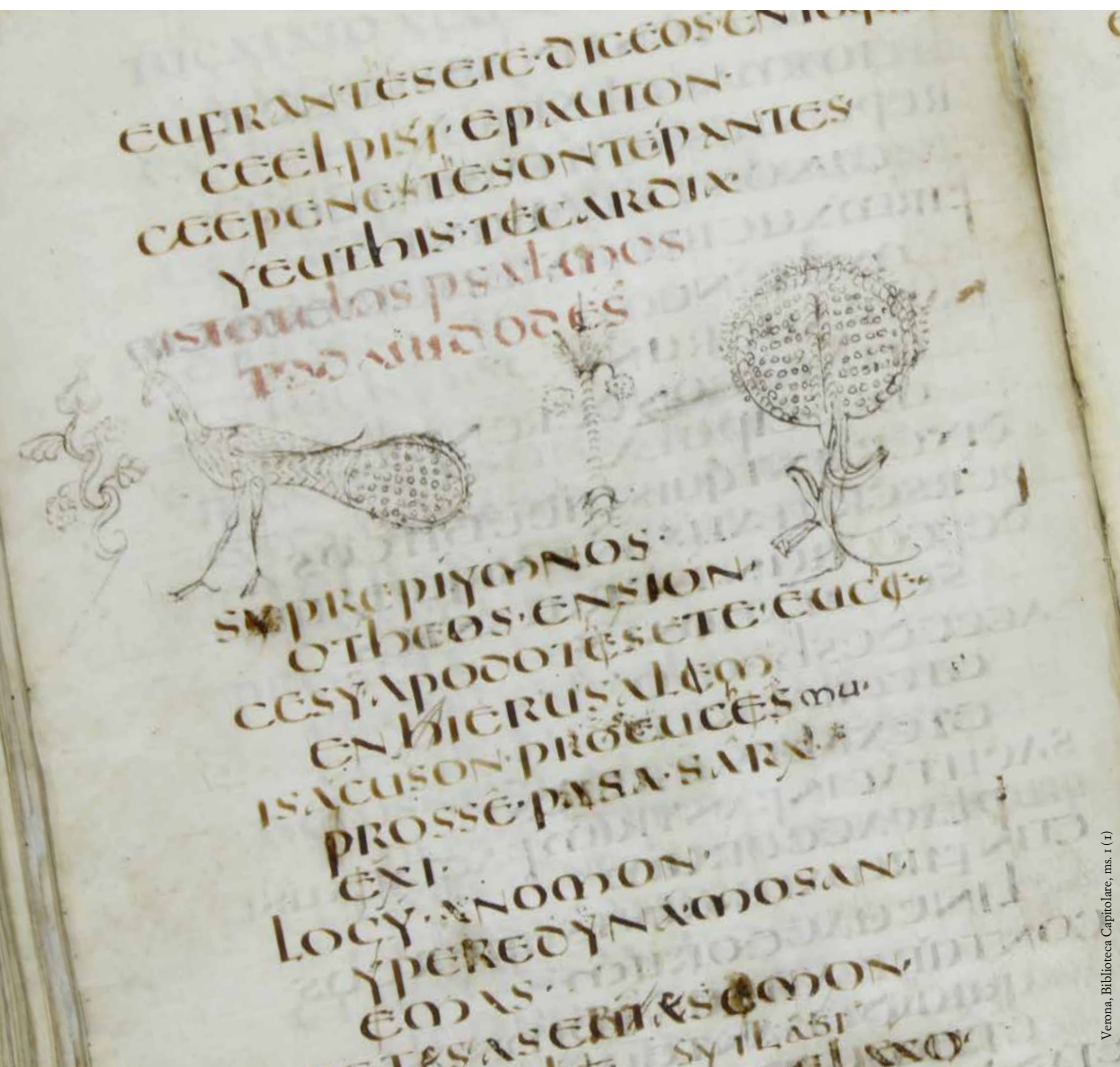 EUFRANTESETE·DICEOS·EN
CEELPISI·EPAUTON·
CEEPENETESONTEPANTES
YEUTHIS·TECARDIA·
ISTOTELOS PSALMOS
TODAUIDODES
SYPREPIYMNOS·
OTHEOS·ENSION·
CESY·APODOTESETE·EUCE·
ENHIERUSALEM
ISACUSON·PROEUCESMU·
PROSSE·PASA·SARX·
EXI·
LOGY·ANOMON·
YPEREDYNAMOSAN·
EMAS·
SYILASI
Verona, Biblioteca Capitolare, ms. 1 (1)